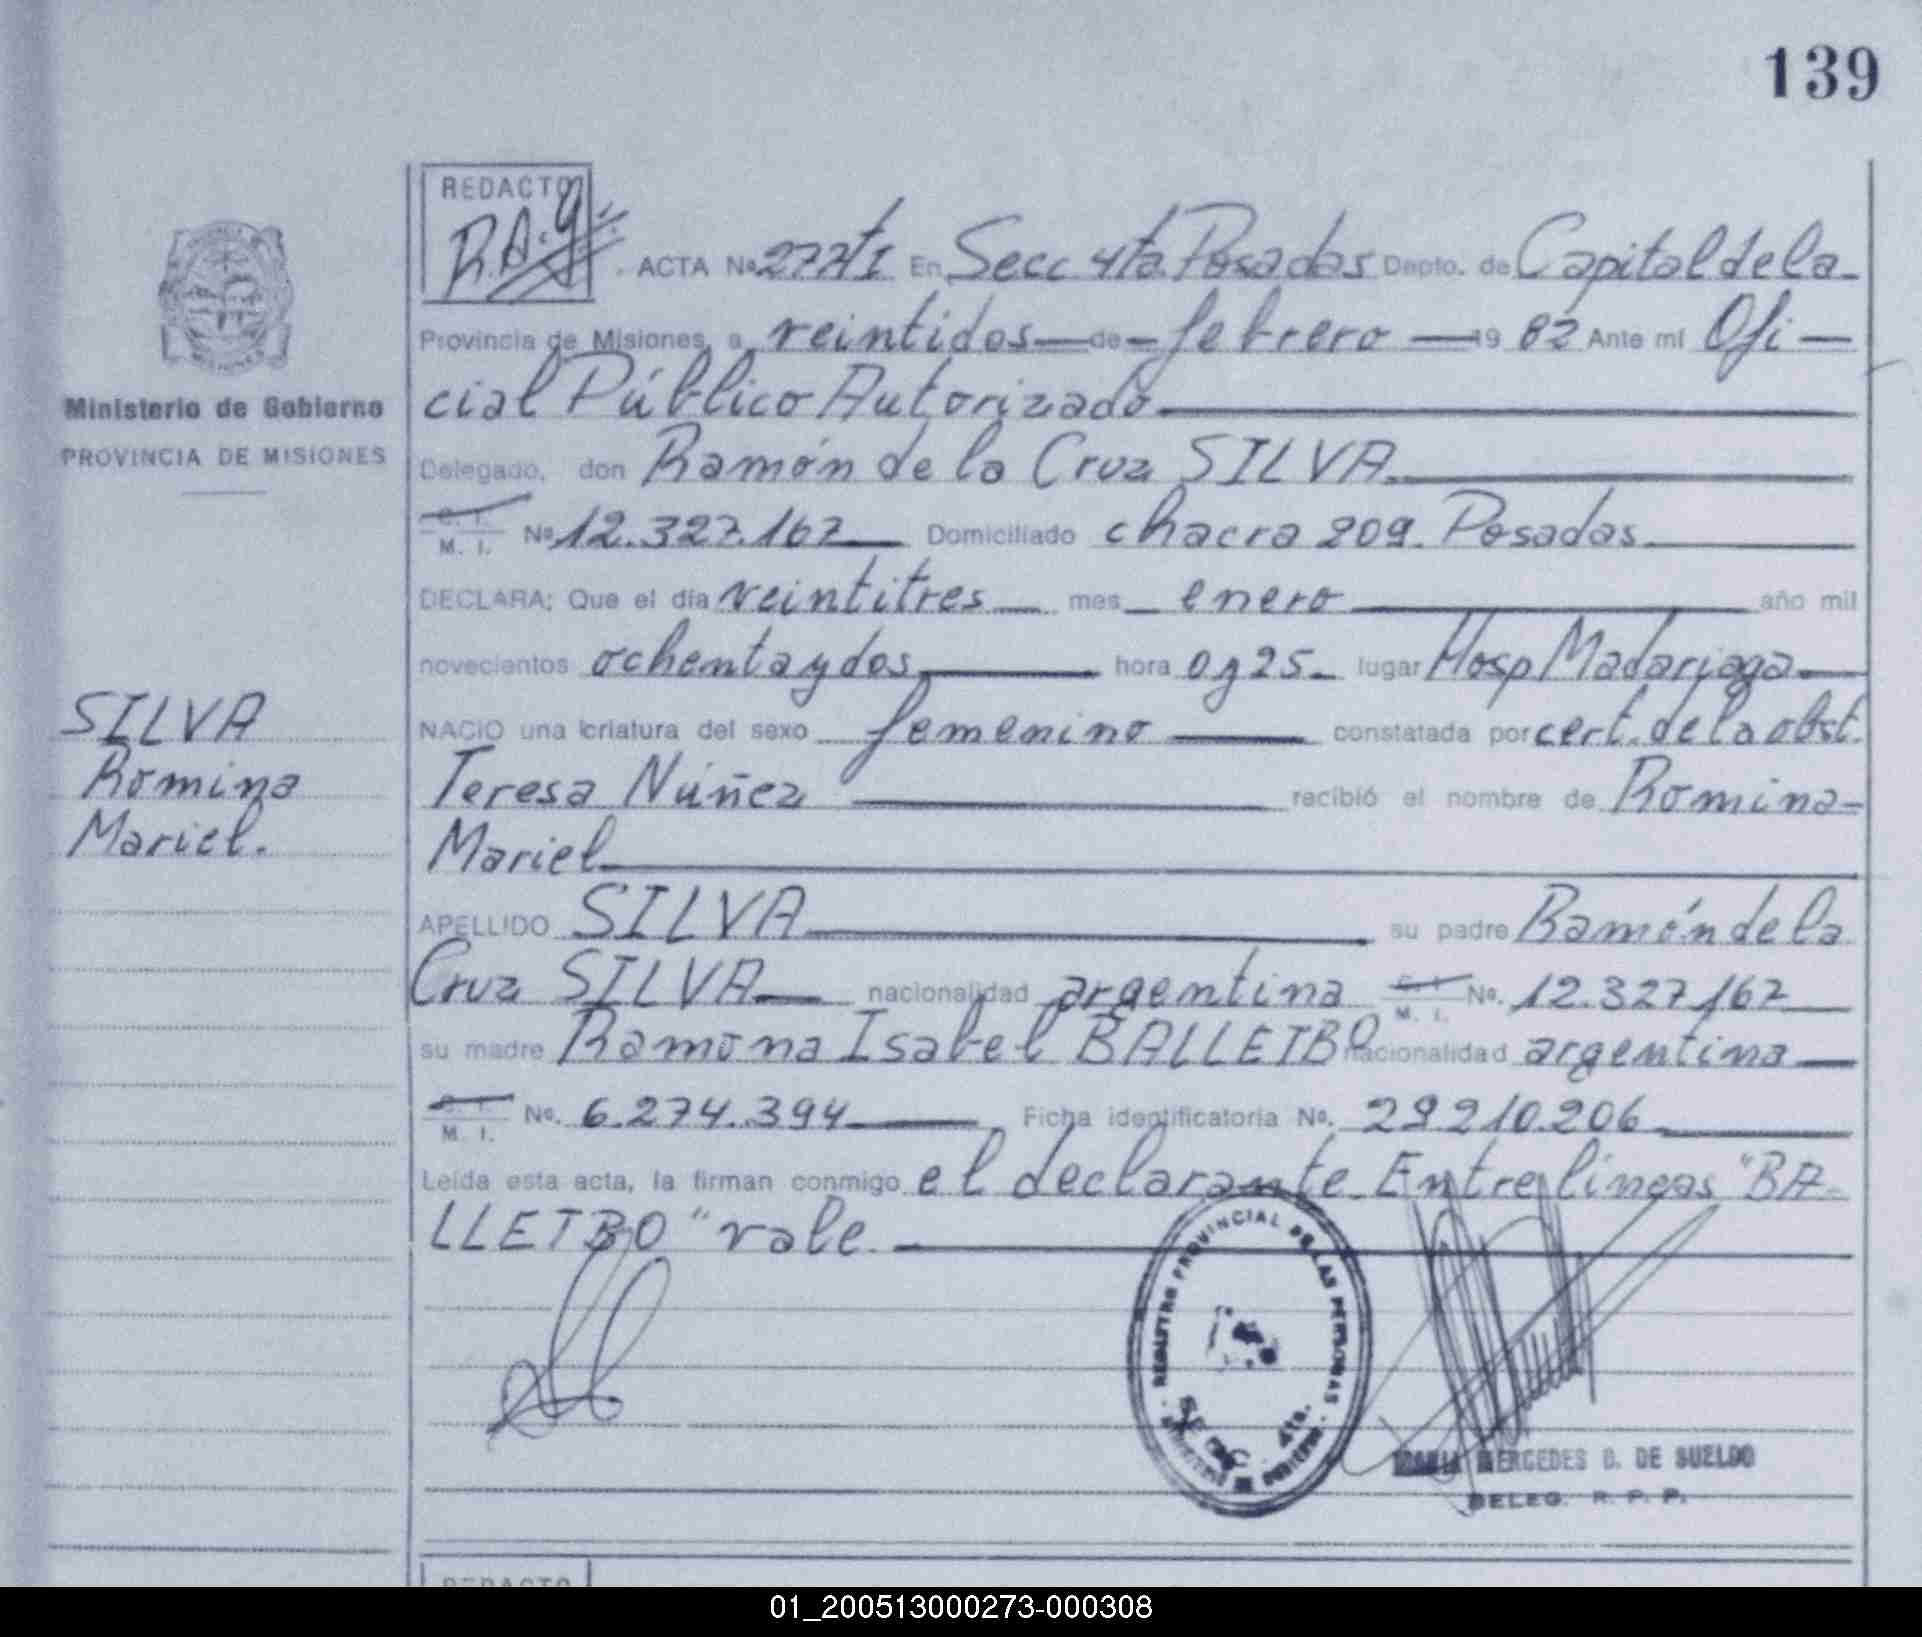 139
REDACTO
R.A.G
ACTA Nº 277 tI En Secc 4ta. Posadas Depto. de Capital de la
Provincia de Misiones, a veintidos — de — febrero — 19 82 Ante mí Ofi-
Ministerio de Gobierno
cial Público Autorizado
PROVINCIA DE MISIONES
Delegado, don Ramón de la Cruz SILVA
C. I.
M. I. Nº 12.327.167 Domiciliado chacra 209. Posadas
DECLARA: Que el día veintitres mes enero año mil
novecientos ochenta y dos hora 0y25 lugar Hosp Madariaga
SILVA
Romina
Mariel.
NACIO una criatura del sexo femenino constatada por cert. de la obst.
Teresa Núñez recibió el nombre de Romina-
Mariel
APELLIDO SILVA su padre Ramón de la
Cruz SILVA nacionalidad argentina C. I. M. I. No. 12.327.167
su madre Ramona Isabel BALLETBO nacionalidad argentina
C. I.
M. I. No. 6.274.394 Ficha identificatoria No. 29.210.206
Leída esta acta, la firman conmigo el declarante. Entre lineas "BA-
LLETBO" vale.
REGISTRO PROVINCIAL DE LAS PERSONAS
SECC. 4ta.
MARIA MERCEDES D. DE SUELDO
DELEG. R. P. P.
REDACTO
01_200513000273-000308